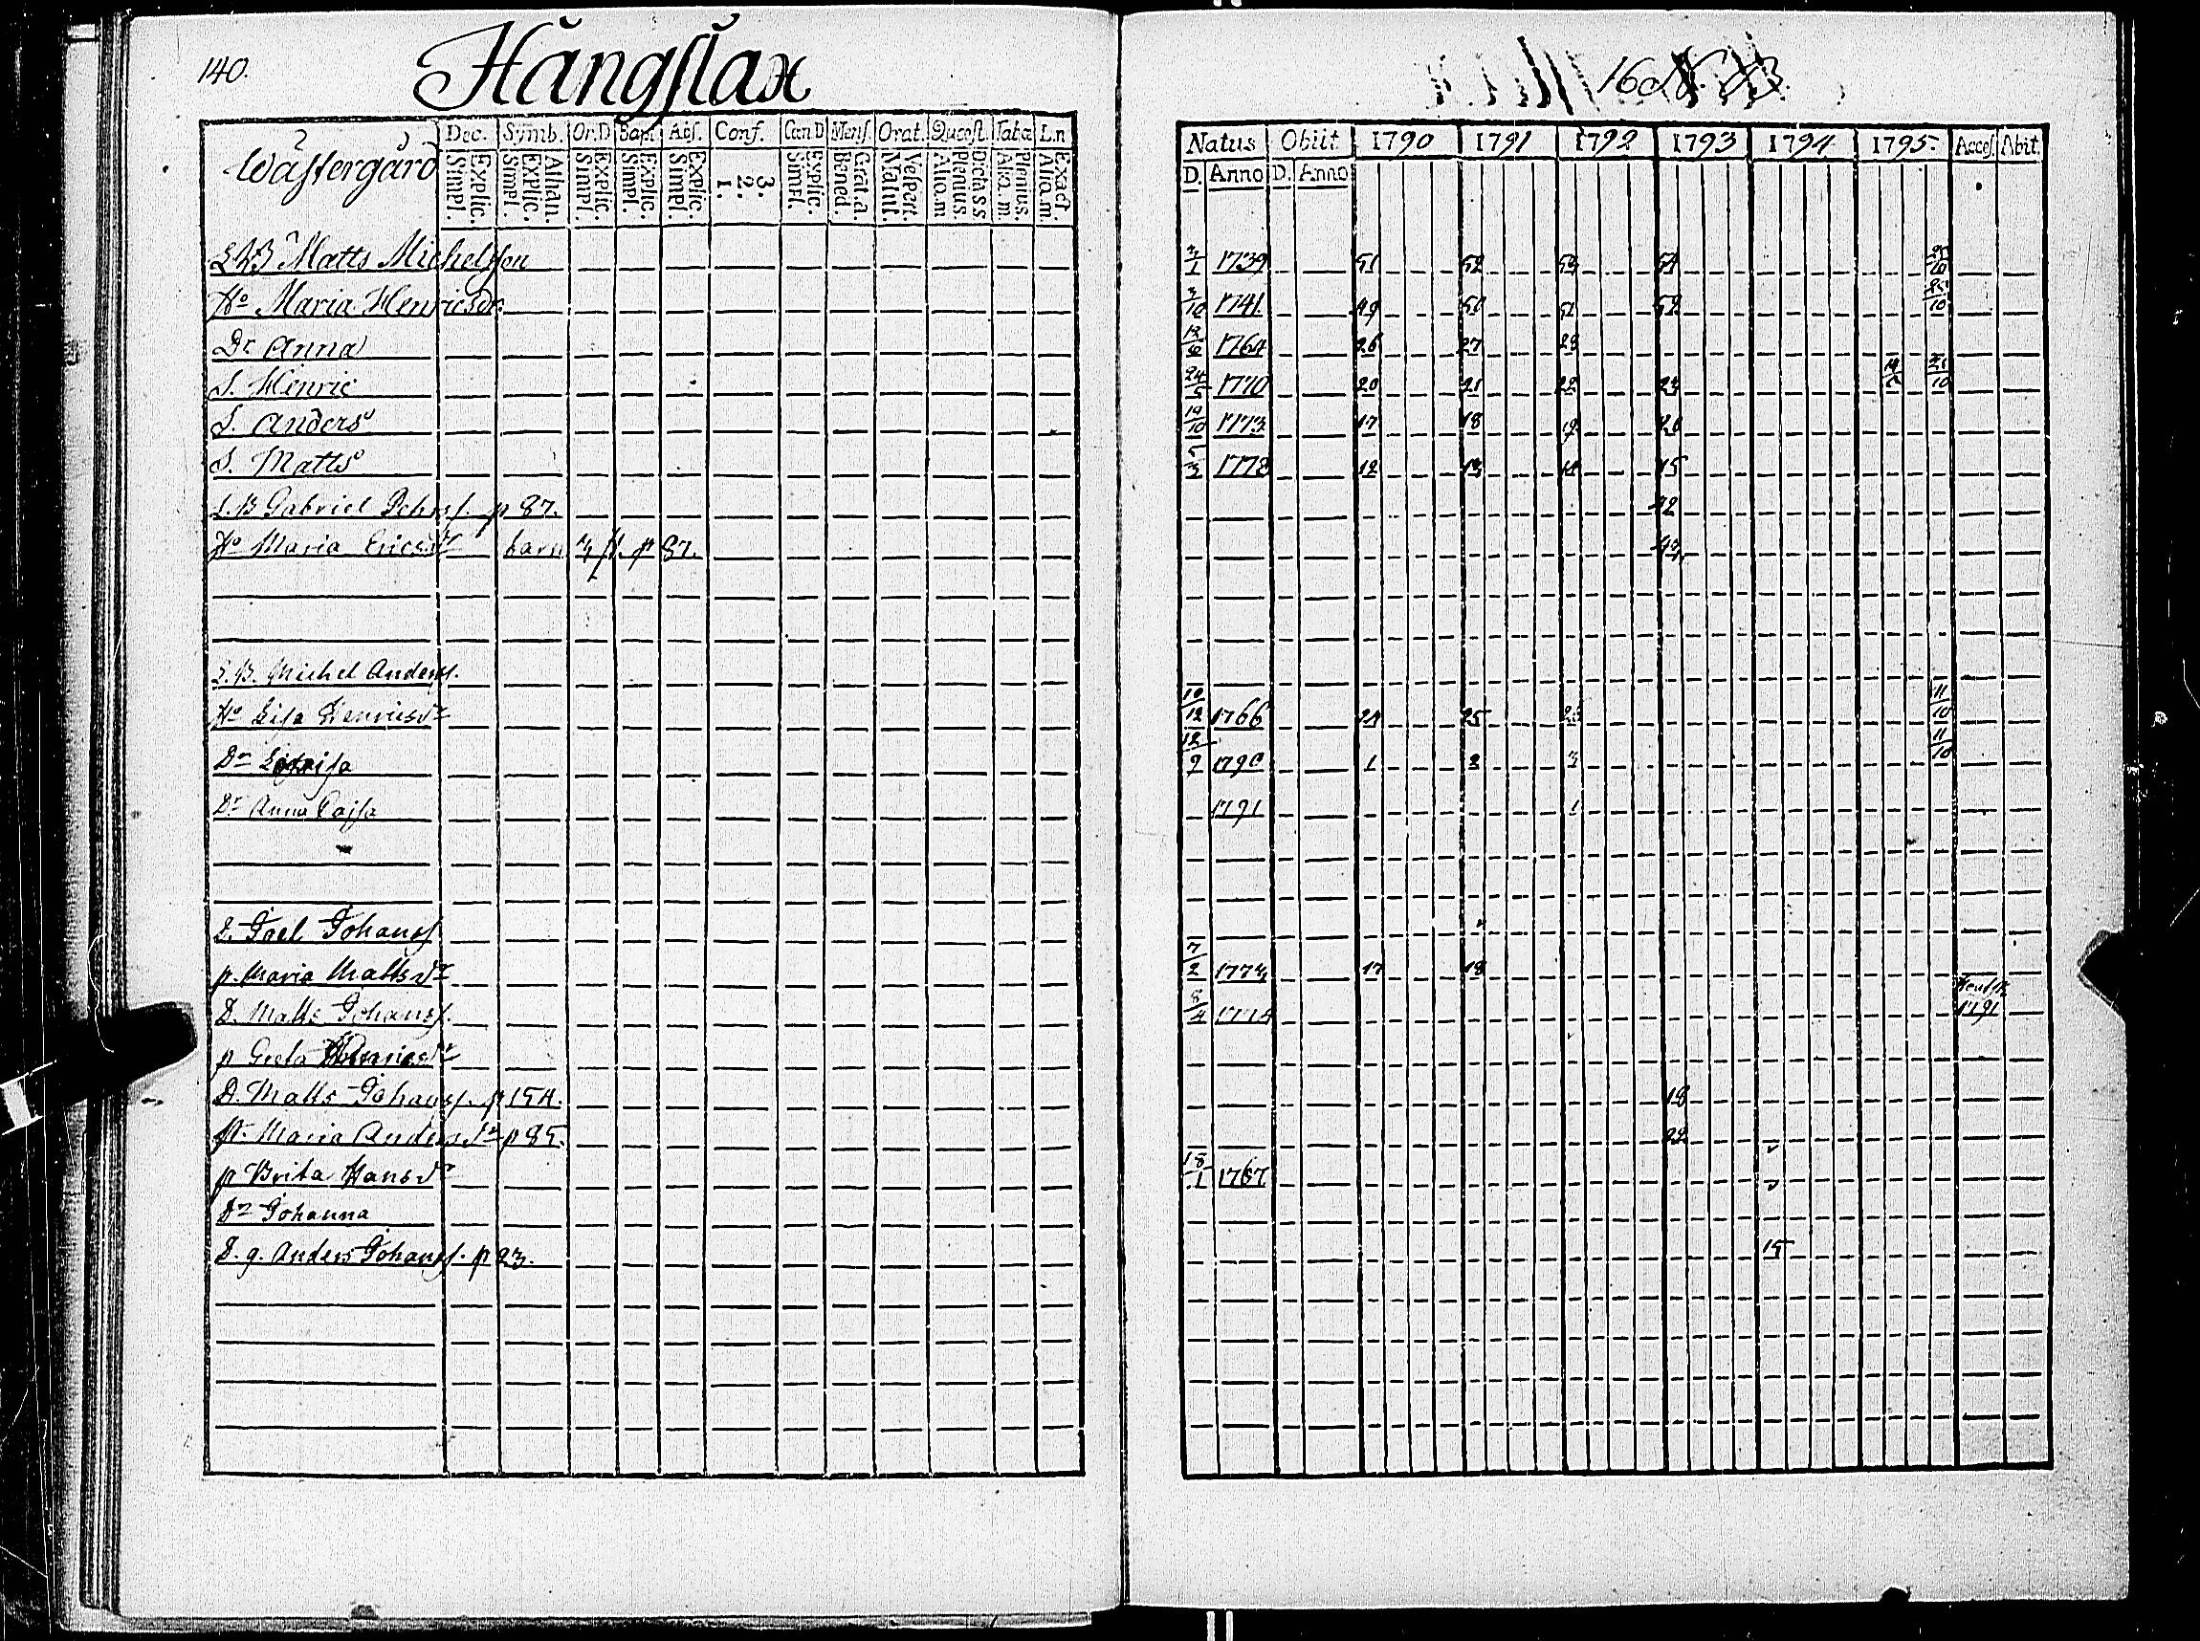 140.
Hångslax
16
Wästergård
Dec. Symb. Or.D Bapt. Abs. Conf. Cœn D Mens. Orat. Quæst. Taba L.n
Simpl. Explic. Simpl. Explic. Athan. Simpl. Explic. Simpl. Explic. Simpl. Explic. 1. 2. 3. Simpl. Explic. Bened. Grat.a. Matut. Vespert. Aliq.m Plenius. Dicta S.S. Aliq.m. Plenius. Aliq.m. Exact.
Natus Obiit 1790 1791 1792 1793 1794 1795 Acces. Abit.
D. Anno D. Anno
Matts Michelsson 1739 51 52 53 54
Ho Maria Henricsdr. 3/10 1741 49 50 51 52 25/10
Dr Anna 12/6 1764 26 27 28
S. Henric 24/5 1770 20 21 22 23 21/10
S. Anders 19/10 1773 17 18 19 20
S. Matts 1778 12 13 14 15
S.B Gabriel Johans. p 87. 42
Ho Maria Ericsdr barn p 87.
S.B. Michel Anders.
Ho Lisa Henricsdr 10/12 1766 24 25 26 11/10
Dr 12/9 1790 1 2 3 11/10
Dr Anna Cajsa 1791 1
D. Joel Johans.
p. Maria Mattsdr 7/2 1773 17 18
D. Matts Johans. 8/4 1774 1791
p Greta
D. Matts Johans. p 154. 18
Maria Andersdr p 85. 22
p Brita Hansdr 18/1 1767
Dr Johanna
D. g. Anders Johans. p 23. 15